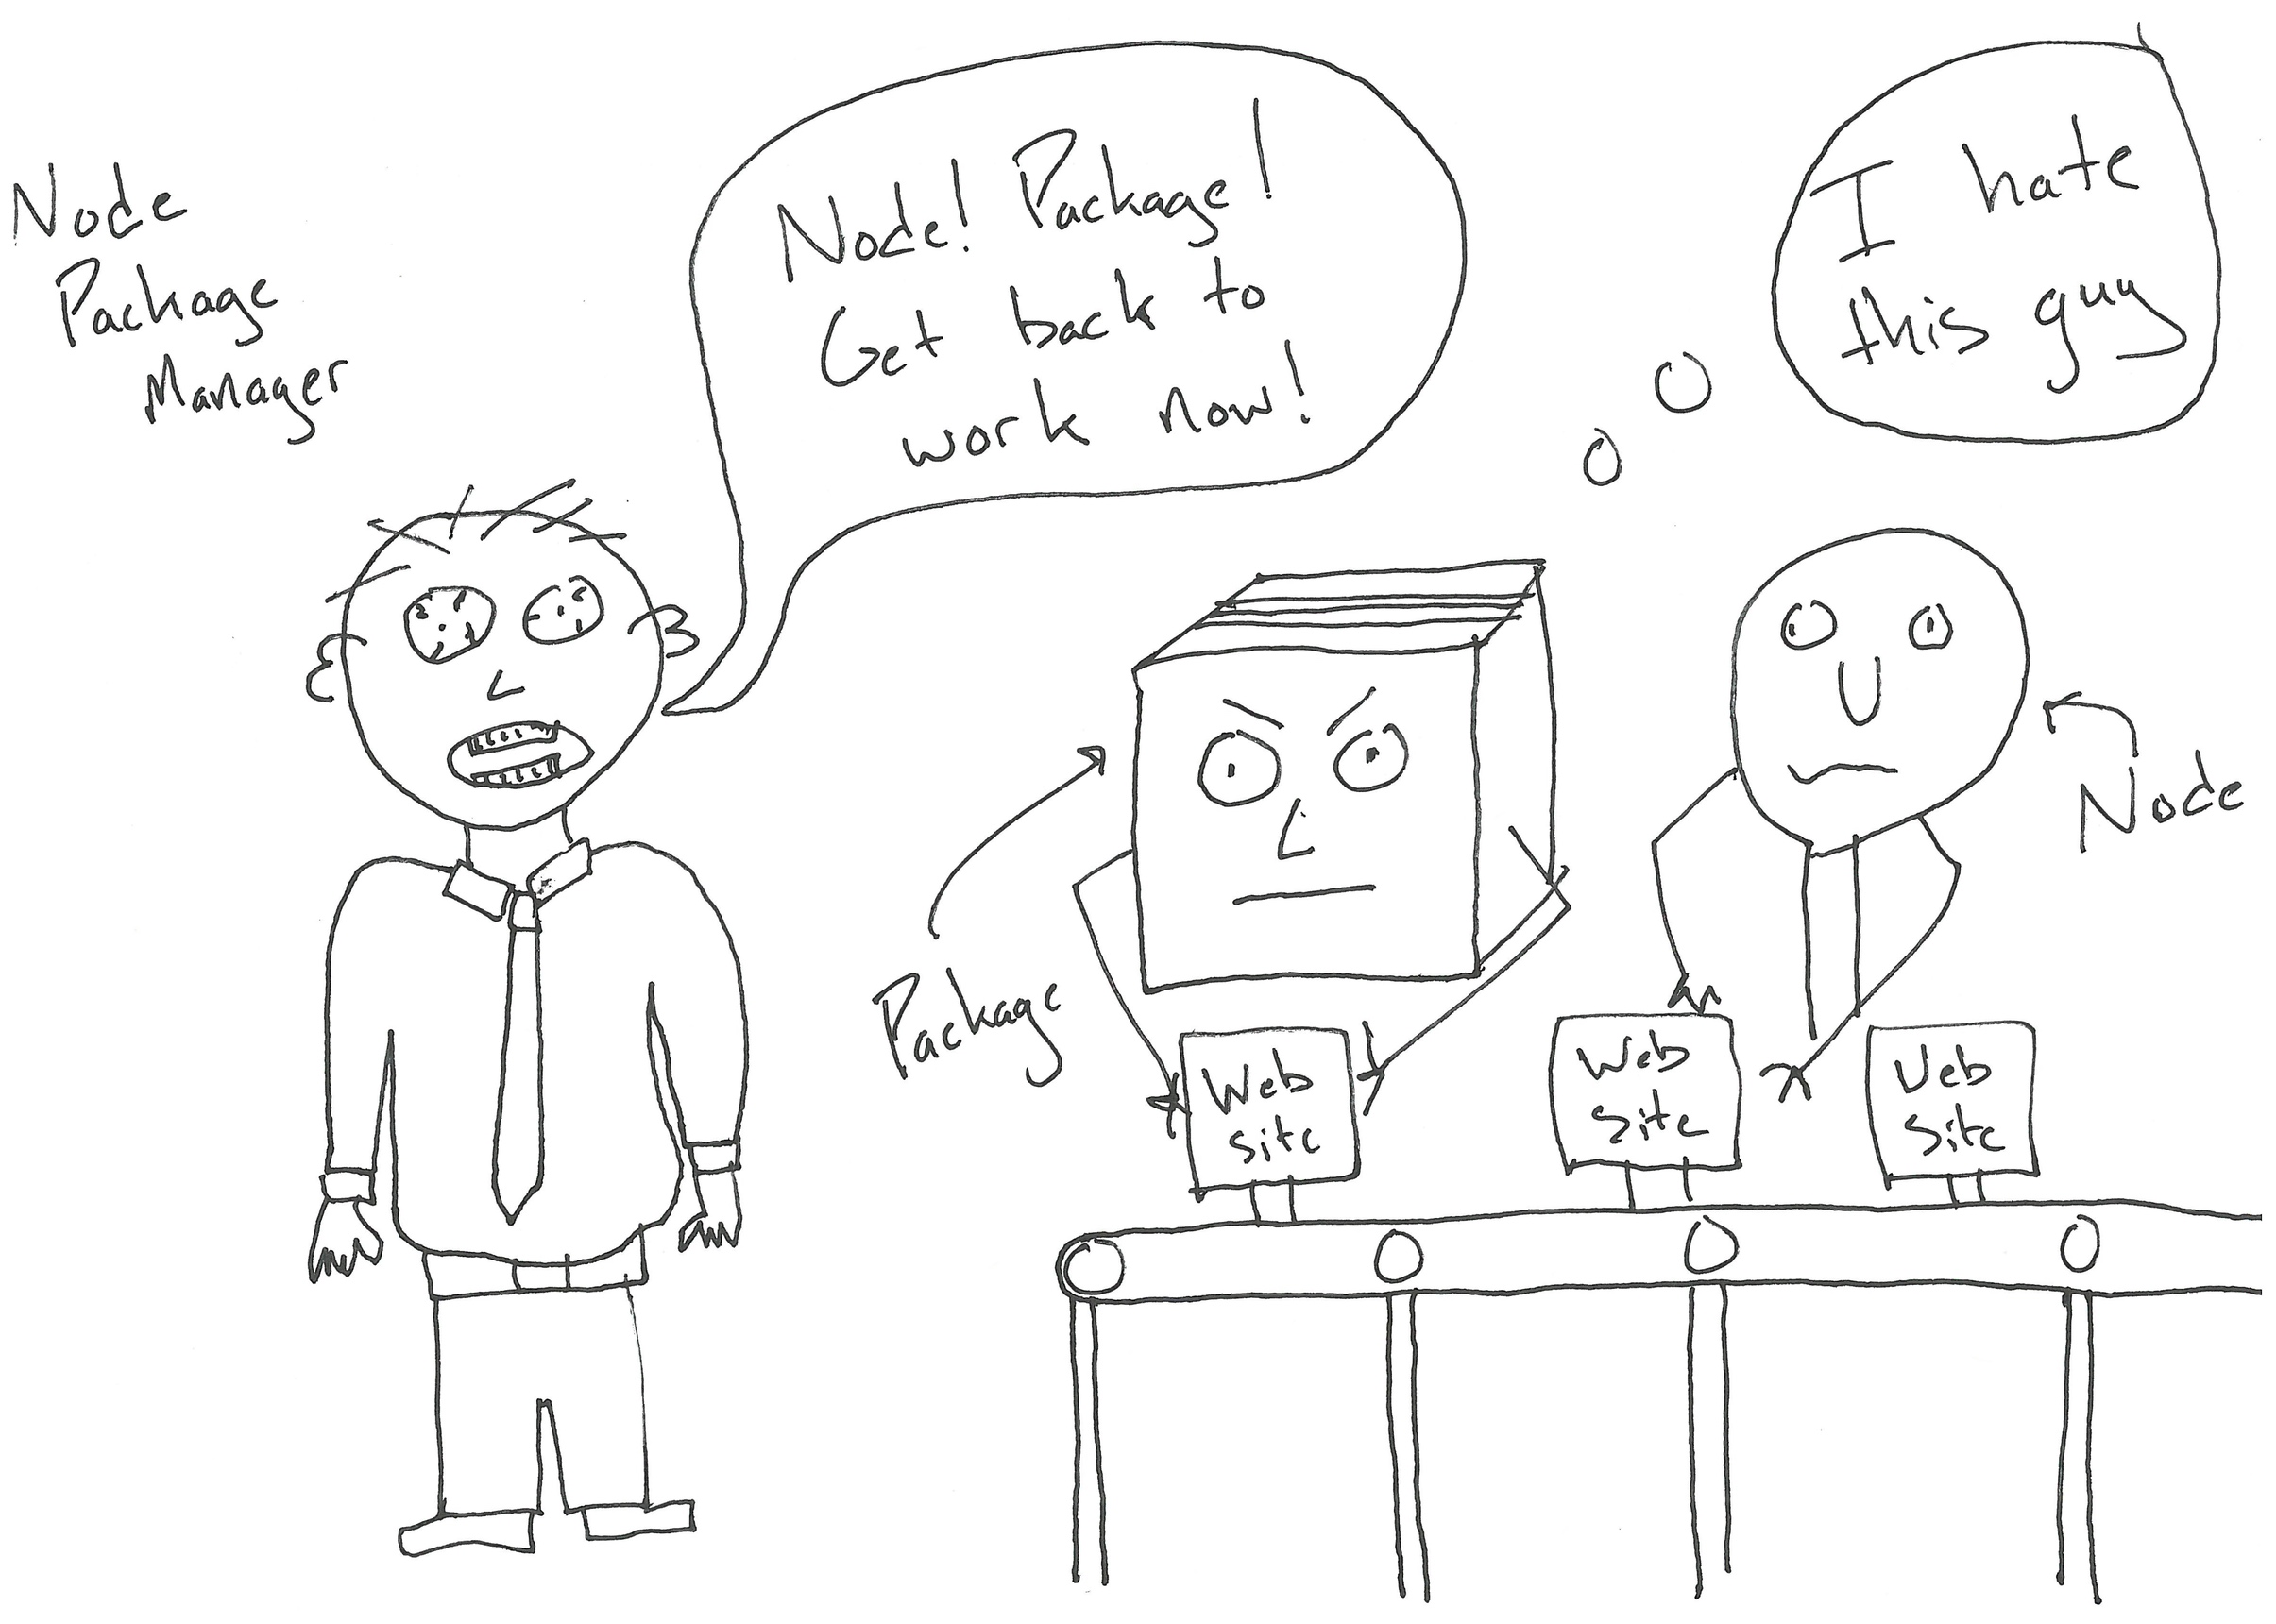 Node
Package
Manager
Node! Package!
Get back to
work now!
I hate
this guy
Package
Node
Web
site
Web
site
Web
site